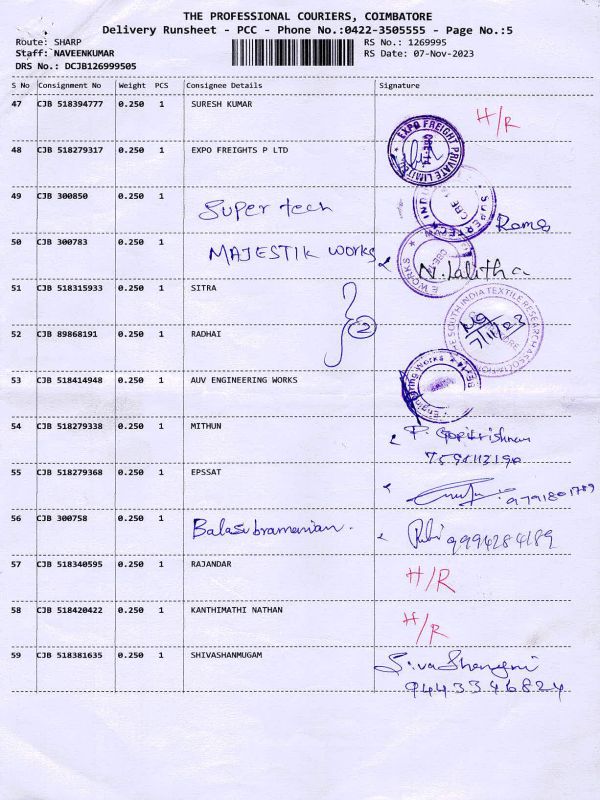 THE PROFESSIONAL COURIERS, COIMBATORE
Delivery Runsheet - PCC - Phone No.:0422-3505555 - Page No.:5
Route: SHARP RS No.: 1269995
Staff: NAVEENKUMAR RS Date: 07-Nov-2023
DRS No.: DCJB126999505
S No Consignment No Weight PCS Consignee Details Signature
47 CJB 518394777 0.250 1 SURESH KUMAR H/R
48 CJB 518279317 0.250 1 EXPO FREIGHTS P LTD EXPO FREIGHT PRIVATE LIMITED
49 CJB 300850 0.250 1 Super tech SUPERTECH Rama
50 CJB 300783 0.250 1 MAJESTIK WORKS WORKS N. Lalitha
51 CJB 518315933 0.250 1 SITRA THE SOUTH INDIA TEXTILE RESEARCH ASSOCIATION
52 CJB 89868191 0.250 1 RADHAI 2 7/11/23
53 CJB 518414948 0.250 1 AUV ENGINEERING WORKS
54 CJB 518279338 0.250 1 MITHUN P. Gopikrishnan
55 CJB 518279368 0.250 1 EPSSAT
56 CJB 300758 0.250 1 Balasubramanian. 9994284189
57 CJB 518340595 0.250 1 RAJANDAR H/R
58 CJB 518420422 0.250 1 KANTHIMATHI NATHAN H/R
59 CJB 518381635 0.250 1 SHIVASHANMUGAM
9443346824